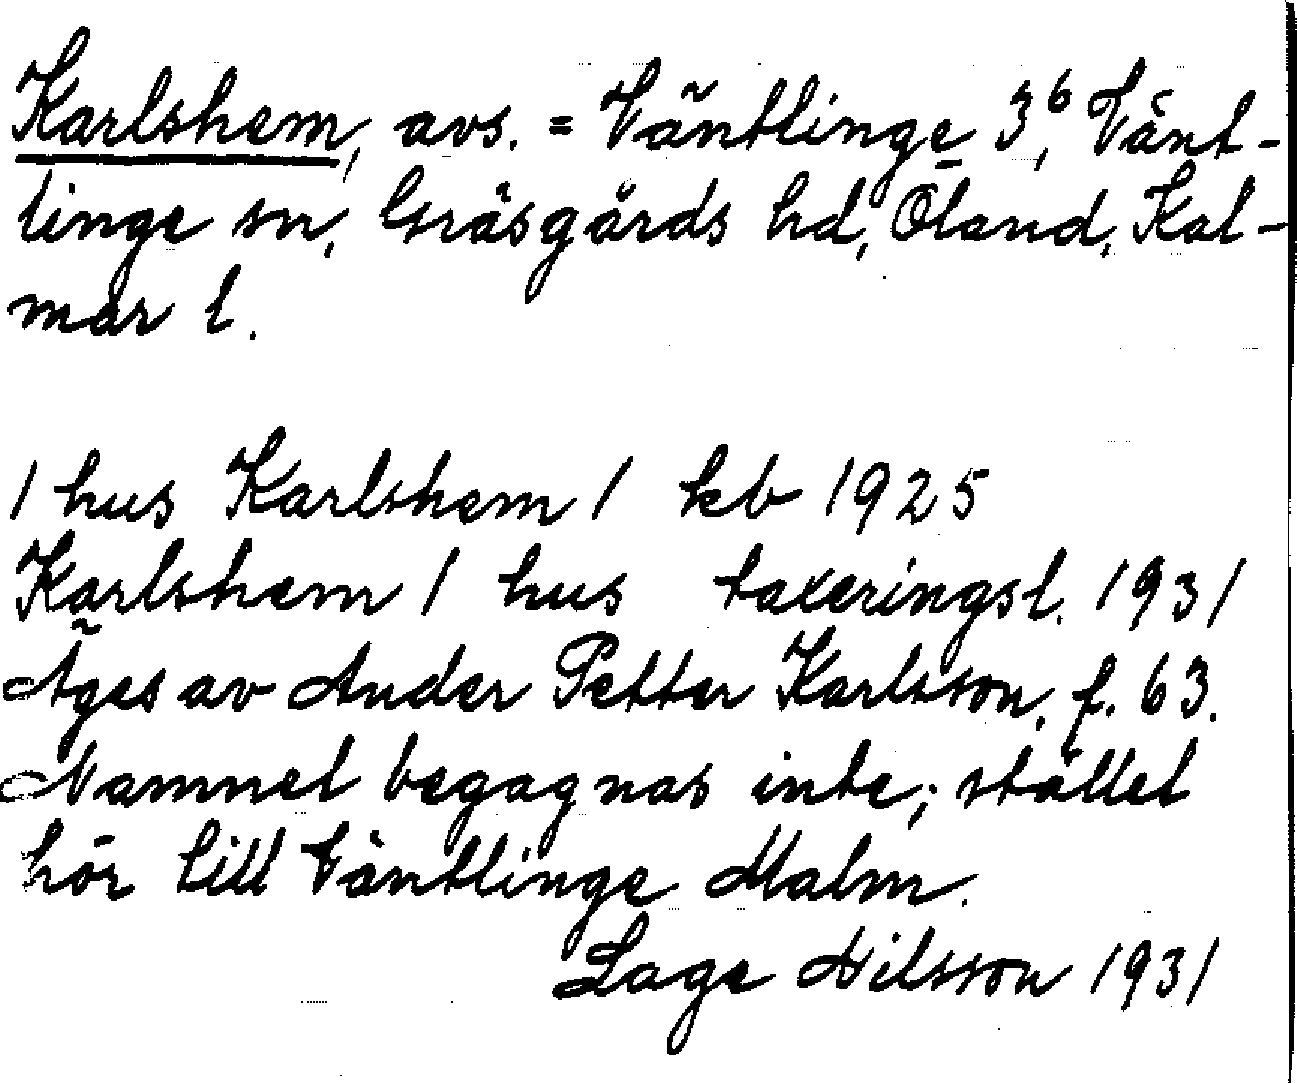 Karlshem, avs. = Väntlinge 3⁶, Vänt-
linge sn, Gräsgårds hd, Öland, Kal-
mar l.
1 hus Karlshem 1 kb 1925
Karlshem 1 hus taxeringsl. 1931
Äges av Ander Petter Karlsson, f. 63.
Namnet begagnas inte; stället
hör till Väntlinge Malm.
Lage Nilsson 1931